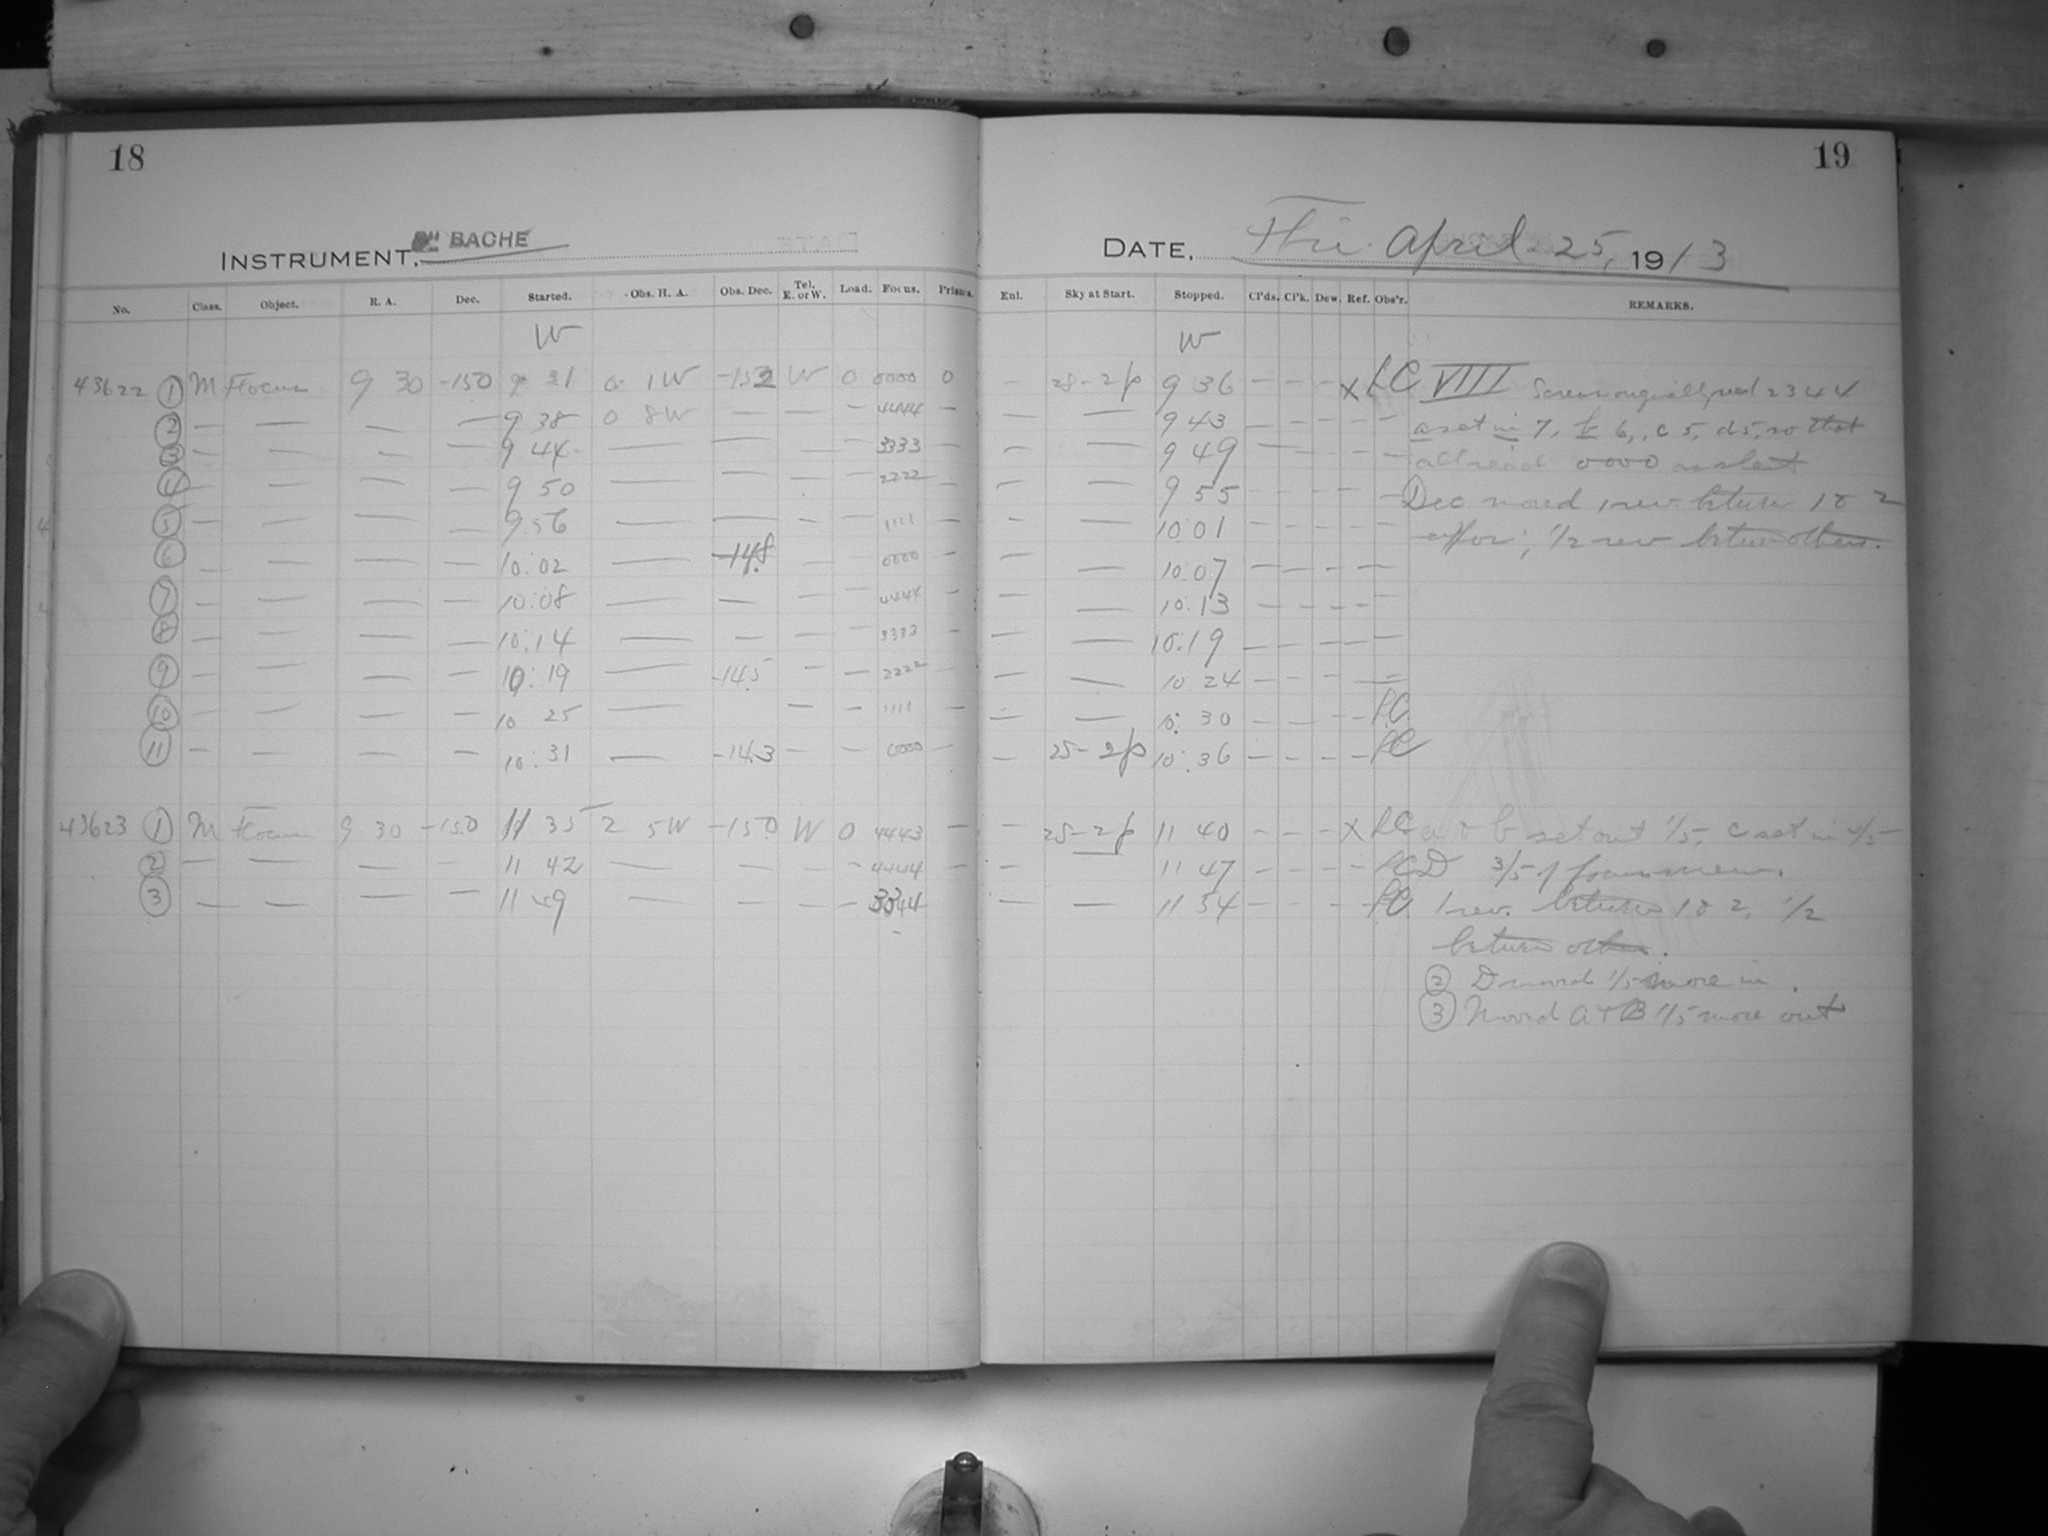 18
19
INSTRUMENT, 8" BACHE
DATE, Fri. April 25, 1913
No. Class. Object. R. A. Dec. Started. Obs. H. A. Obs. Dec. Tel. E. or W. Load. Focus. Prisms. Enl. Sky at Start. Stopped. Cl'ds. Cl'k. Dew. Ref. Obs'r. REMARKS.
W W
43622 ① M Focus 9 30 -15.0 9 31 0 1W -15.2 W 0 0000 0 — 28-2p 9 36 — — — X LC VIII Screws originally read 2344
② — — — — 9 38 0 8W — — — 4444 — — — 9 43 — — — — — a set in 7, b 6, c 5, d 5, so that
③ — — — — 9 44 — — — — 3333 — — — 9 49 — — — — all read 0000 at start
④ — — — — 9 50 — — — — 2222 — — — 9 55 — — — — — Dec moved 1 rev. between 1 & 2
⑤ — — — — 9 56 — — — — 1111 — — — 10:01 — — — — ; 1/2 rev between others.
⑥ — — — — 10:02 — -14.8 — 0000 — — 10:07 — — — —
⑦ — — — — 10:08 — — — — 4444 — — — 10:13 — — — —
⑧ — — — — 10:14 — — — — 3333 — — — 10:19 — — — —
⑨ — — — — 10:19 — -14.5 — — 2222 — — — 10 24 — — — —
⑩ — — — — 10 25 — — — 1111 — — 10:30 — — — — LC
⑪ — — — — 10:31 — -14.3 — — 0000 — — 25-2p 10:36 — — — — LC
43623 ① M Focus 9 30 -15.0 11 35 2 5W -15.0 W 0 4443 — — 25-2p 11 40 — — — X LC a & b set out 1/5, c set in 4/5
② — — — — 11 42 — — — — 4444 — — — 11 47 — — — — LC D 3/5
③ — — — — 11 49 — — — — 3344 — — 11 54 — — — — LC 1 rev. between 1 & 2, 1/2
between others.
② D moved 1/5 more in.
③ Moved A & B 1/5 more out